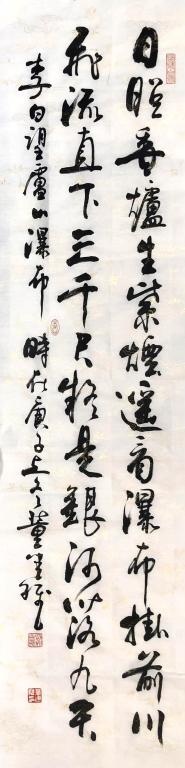 日照香爐生紫煙遥看瀑布掛前川
飛流直下三千尺疑是銀河落九天
李白望廬山瀑布 時在庚子之冬董